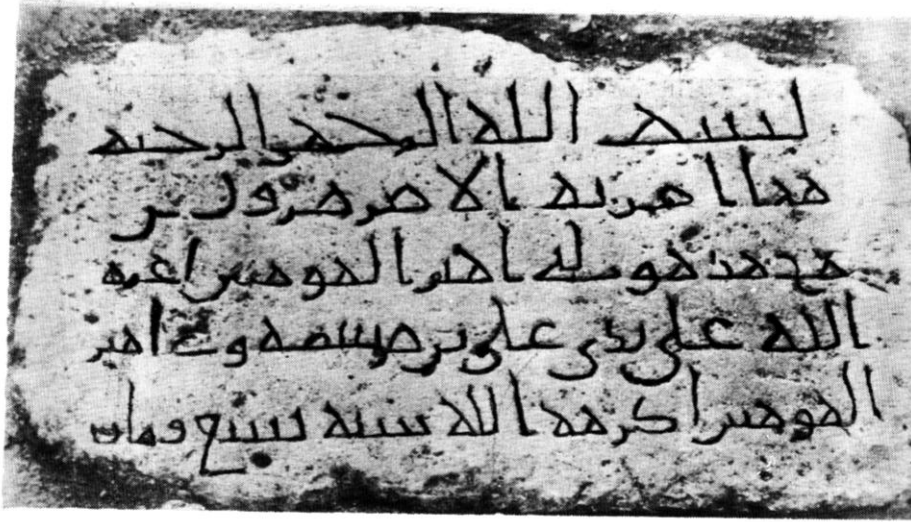 بسم الله الرحمن الرحيم
هذا ما امر به الامير بن
محمد مولى امير المومنين اعزه
الله على يدي علي بن امير
المومنين اكرمه الله سنة سبع